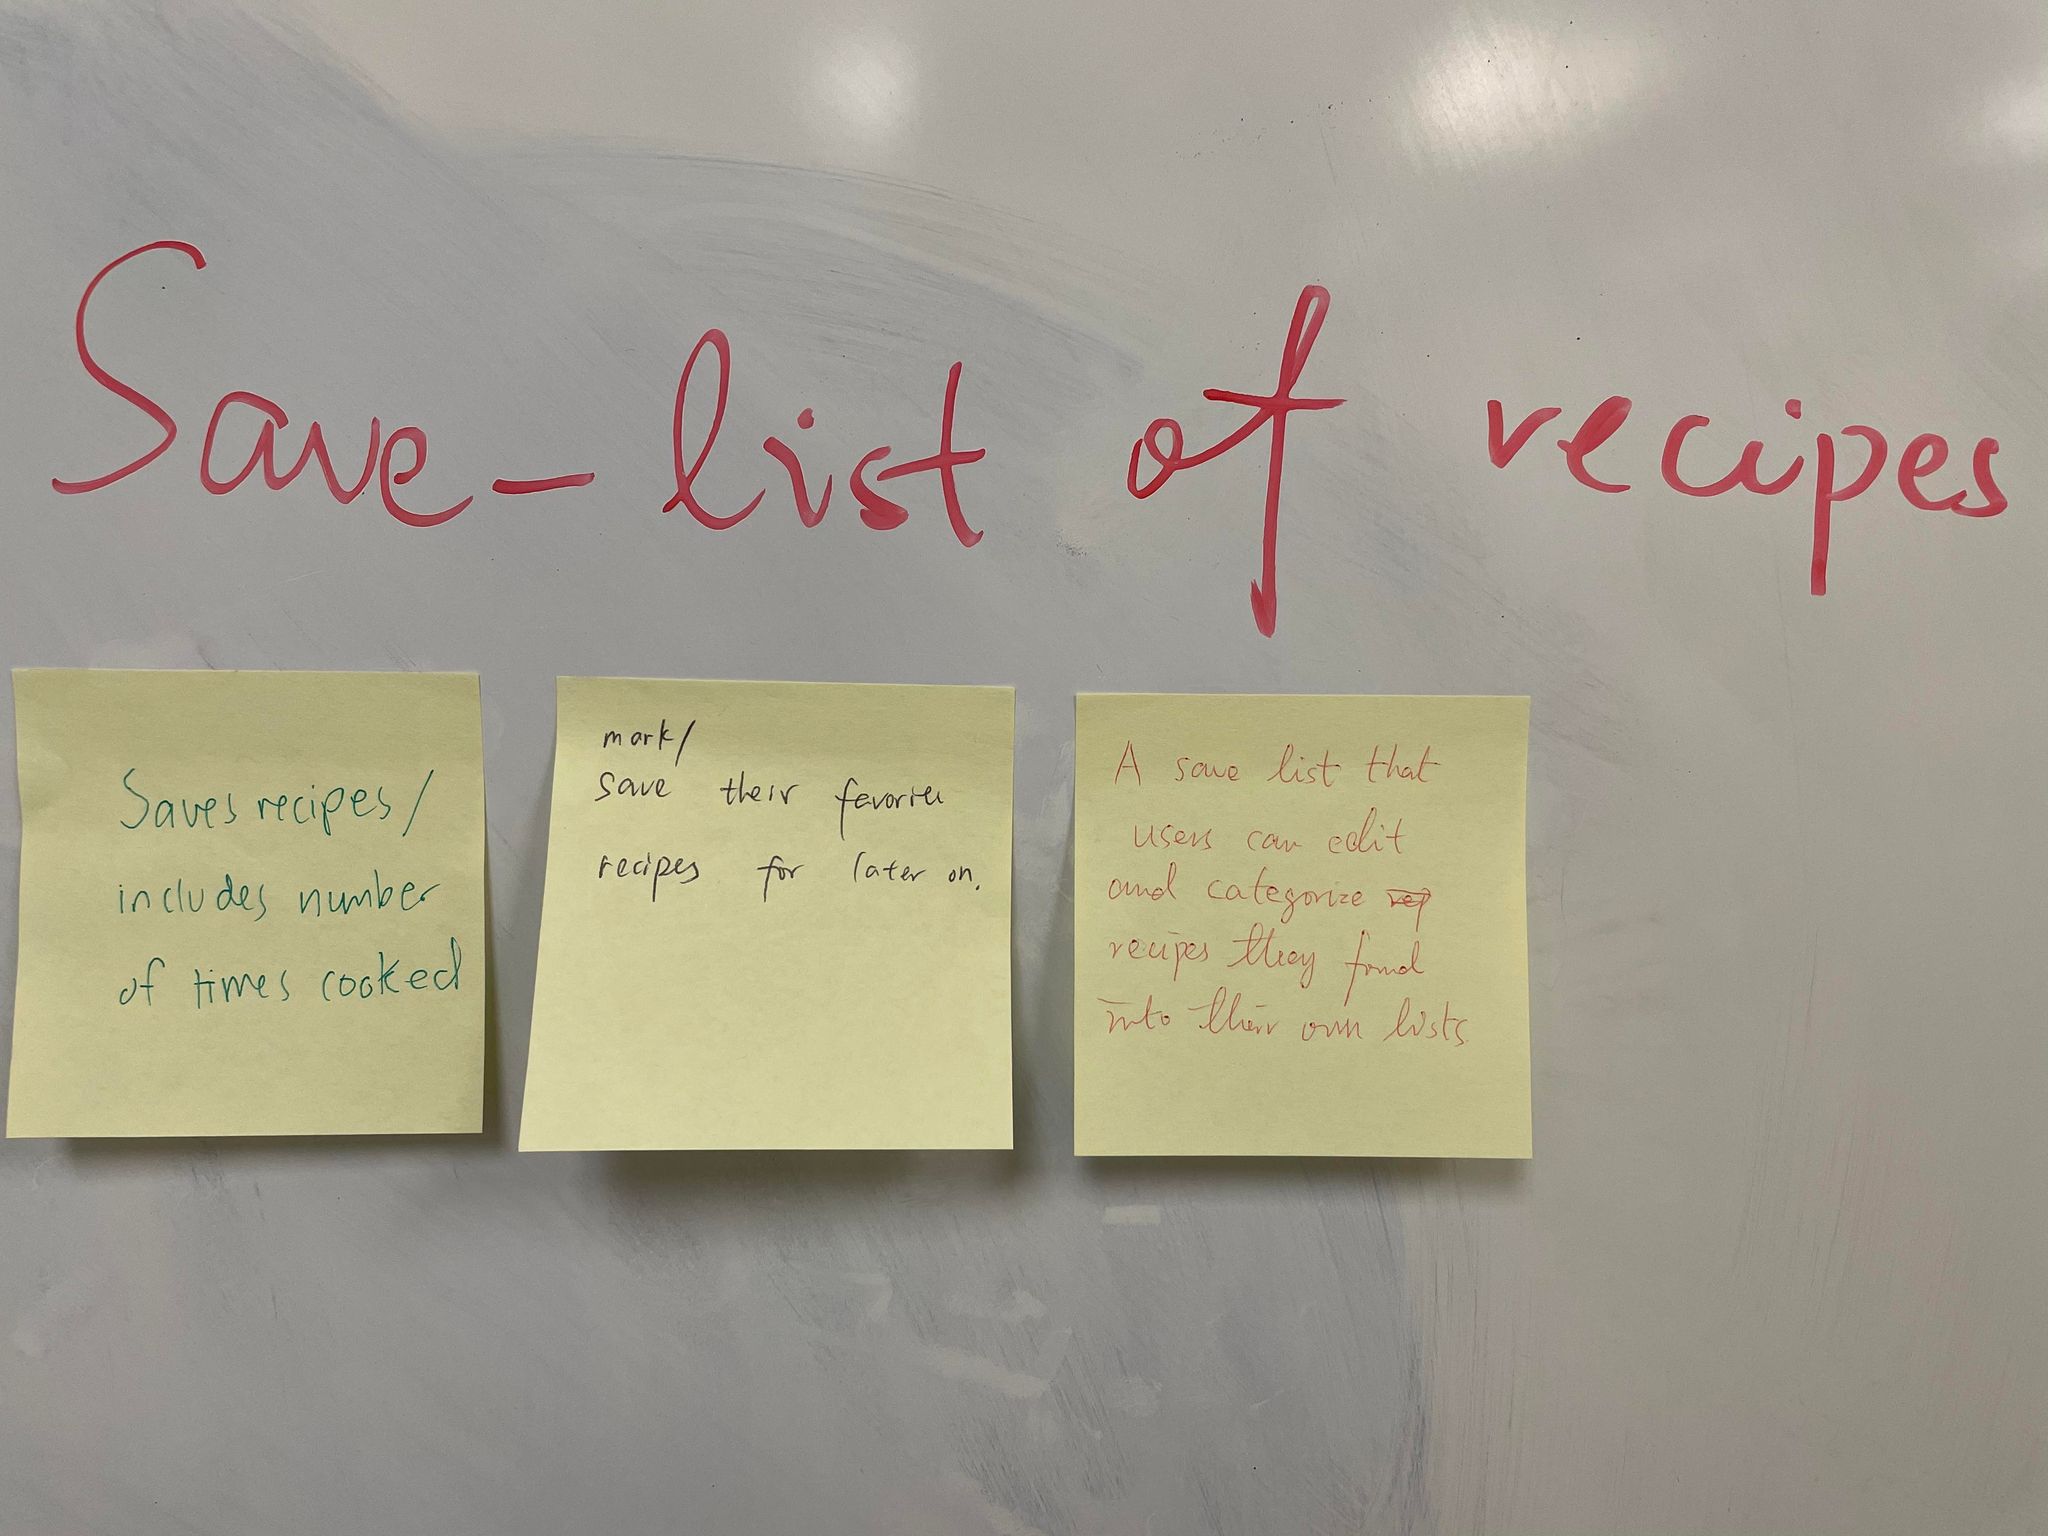 Save-list of recipes
Saves recipes/
includes number
of times cooked
mark/
save their favories
recipes for later on.
A save list that
users can edit
and categorize rep
recipes they found
into their own lists.